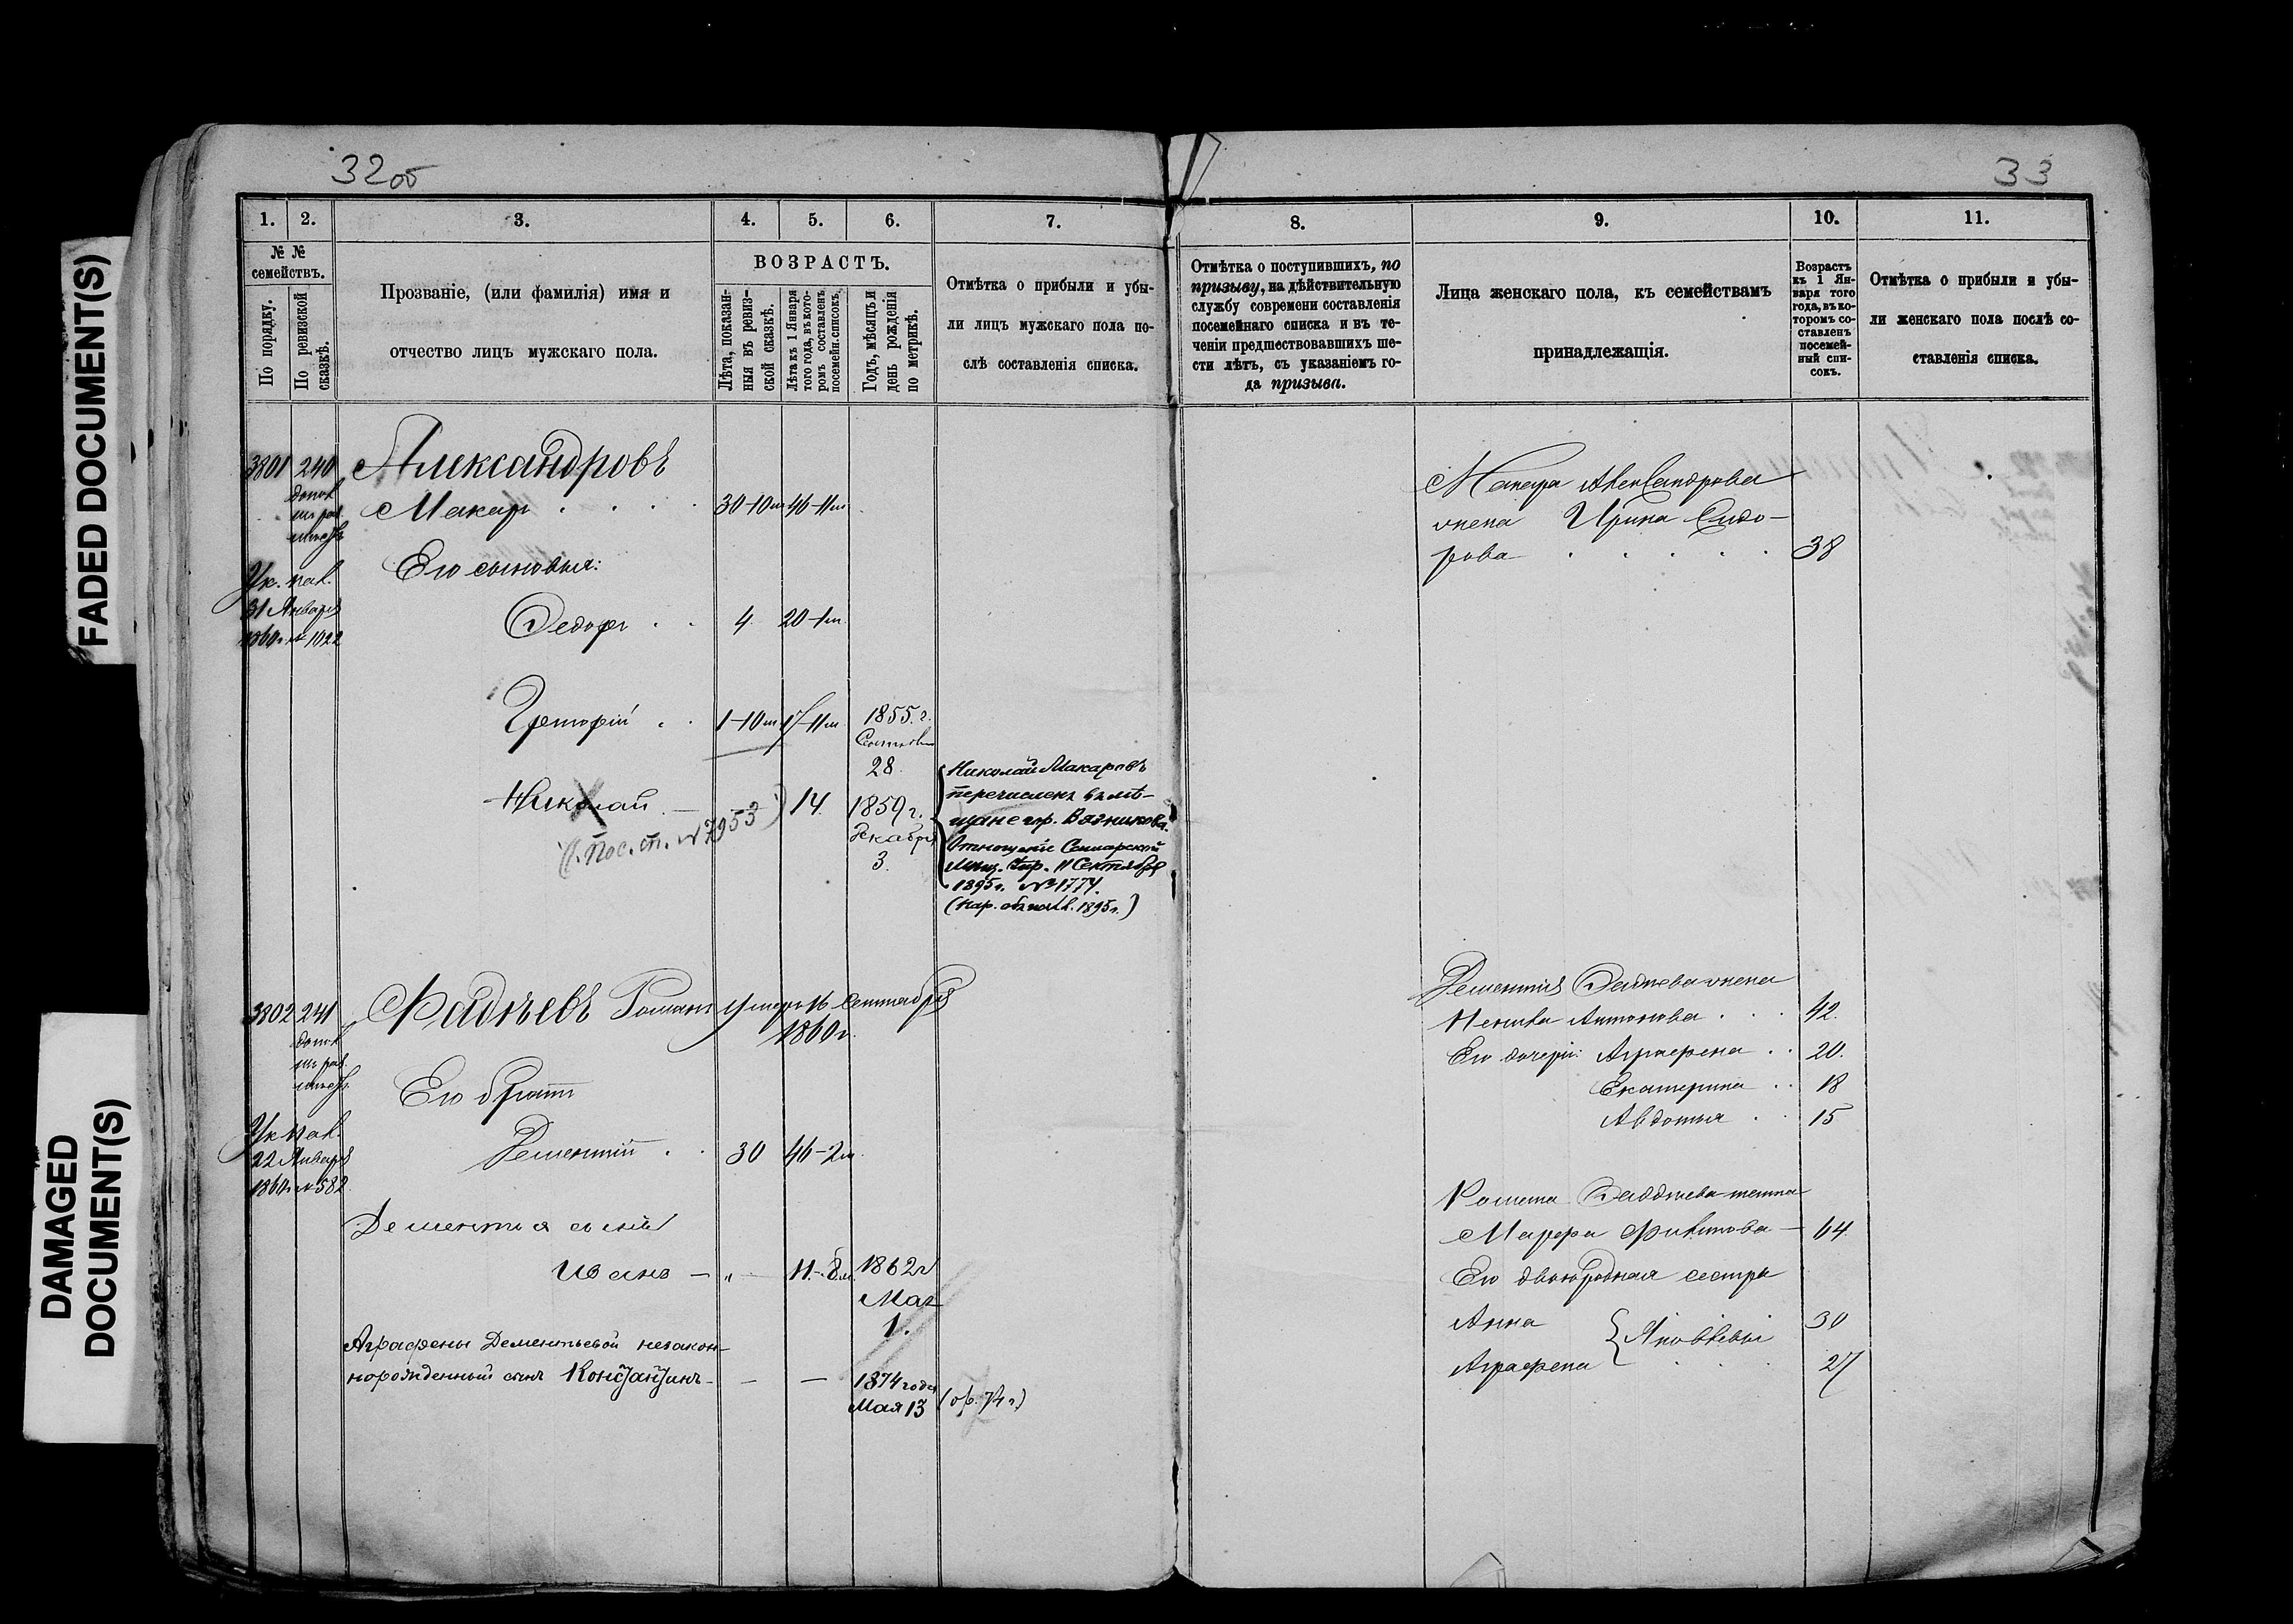 FADED DOCUMENT(S)
DAMAGED
DOCUMENT(S)
32об
1.
2.
3.
4.
5.
6.
7.
№ №
семействъ.
По порядку.
По ревизской
сказкѣ.
Прозваніе, (или фамилія) имя и
отчество лицъ мужскаго пола.
ВОЗРАСТЪ.
Лѣта, показан-
ныя въ ревиз-
ской сказкѣ.
Лѣта къ 1 Января
того года, въ кото-
ромъ составленъ
посемейн. списокъ.
Годъ, мѣсяцъ и
день рожденія
по метрикѣ.
Отмѣтка о прибыли и убы-
ли лицъ мужскаго пола по-
слѣ составленія списка.
3801 240 Александровъ
Макаръ . . . . 30-10м 46-11м
Его сыновья:
31 Января
1860г № 1022
Федоръ . . 4. 20-1м
Григорій . . 1-10м 17-11м 1855.г.
28.
Николай 14. 1859г.
декабря
3.
(Пос. сп. № 7953)
Николай Макаровъ
перечисленъ въ мѣ-
щане гор. Вязникова.
Отношеніе Самарской
Мѣщ. Упр. 11 Сентября
1895г. № 1774.
3802 241 Фадѣевъ Романъ умеръ 16 Сентября
1860г.
Его братъ
Дементій . . 30 46-2м
22 Января
1860г № 582
Дементья сынъ
Иванъ — „ 11-8м. 1862г
Мая
1.
Аграфены Дементьевой незакон-
норожденный сынъ Константинъ - — — 1874 года
Мая 13
33
8.
9.
10.
11.
Отмѣтка о поступившихъ, по
призыву, на дѣйствительную
службу современи составленія
посемейнаго списка и въ те-
ченіи предшествовавшихъ ше-
сти лѣтъ, съ указаніемъ го-
да призыва.
Лица женскаго пола, къ семействамъ
принадлежащія.
Возрастъ
къ 1 Ян-
варя того
года, въ ко-
торомъ со-
ставленъ
посемей-
ный спи-
сокъ.
Отмѣтка о прибыли и убы-
ли женскаго пола послѣ со-
ставленія списка.
Макара Александрова
жена Ирина Сидо-
рова . . . . . 38
Дементія Фадѣева жена
Антонова . . . 42.
Его дочери: Аграфена . . 20.
Екатерина . . 18
Авдотья . . 15
Романа Фаддѣева тетка
Марфа Филипова — 64.
Его двоюродная сестра
Анна 30
{ Яковлевы
Аграфена . . . 27